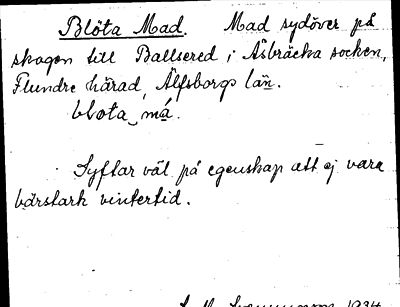 Blöta Mad. Mad sydöver på
skogen till Ballsered i Åsbräcka socken,
Flundre härad, Älfsborgs län.
blota má.
Syftar väl på egenskap att ej vara
bärstark vintertid.
1934